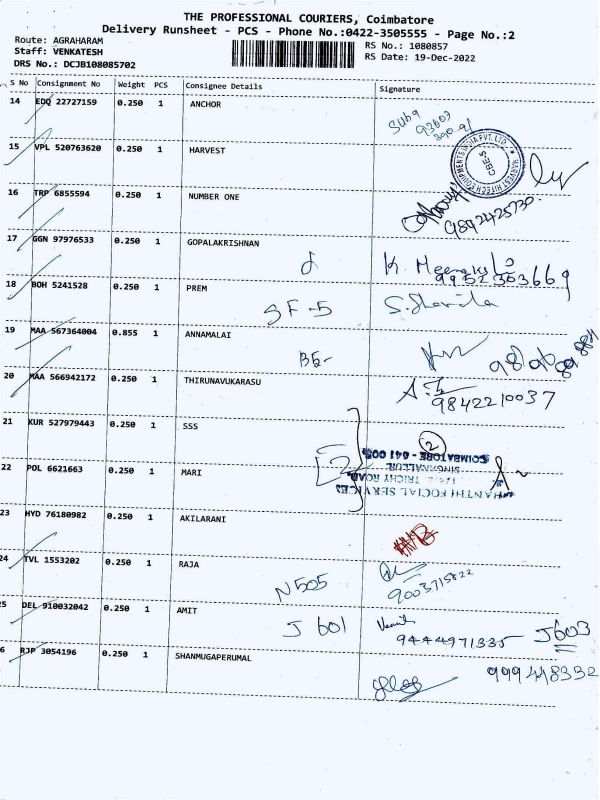 THE PROFESSIONAL COURIERS, Coimbatore
Delivery Runsheet - PCS - Phone No.:0422-3505555 - Page No.:2
Route: AGRAHARAM
Staff: VENKATESH
DRS No.: DCJB108085702
RS No.: 1080857
RS Date: 19-Dec-2022
S No Consignment No Weight PCS Consignee Details Signature
14 EDQ 22727159 0.250 1 ANCHOR
15 VPL 520763620 0.250 1 HARVEST
HARVEST HITECH EQUIPMENTS INDIA PVT. LTD.
CBE-5
16 TRP 6855594 0.250 1 NUMBER ONE
9892425730
17 GGN 97976533 0.250 1 GOPALAKRISHNAN
K. Meena
9952363669
18 BOH 5241528 0.250 1 PREM
SF-5 S. Sharila
19 MAA 567364004 0.855 1 ANNAMALAI
20 MAA 566942172 0.250 1 THIRUNAVUKARASU
9842210037
21 KUR 527979443 0.250 1 SSS
2
22 POL 6621663 0.250 1 MARI
2
SHANTHI SOCIAL SERVICES
TRICHY ROAD,
SINGANALLUR,
COIMBATORE - 641 005.
23 HYD 76180982 0.250 1 AKILARANI
24 TVL 1553202 0.250 1 RAJA
N505 9003715822
25 DEL 910032042 0.250 1 AMIT
J 601 9444971335 J603
26 RJP 3054196 0.250 1 SHANMUGAPERUMAL